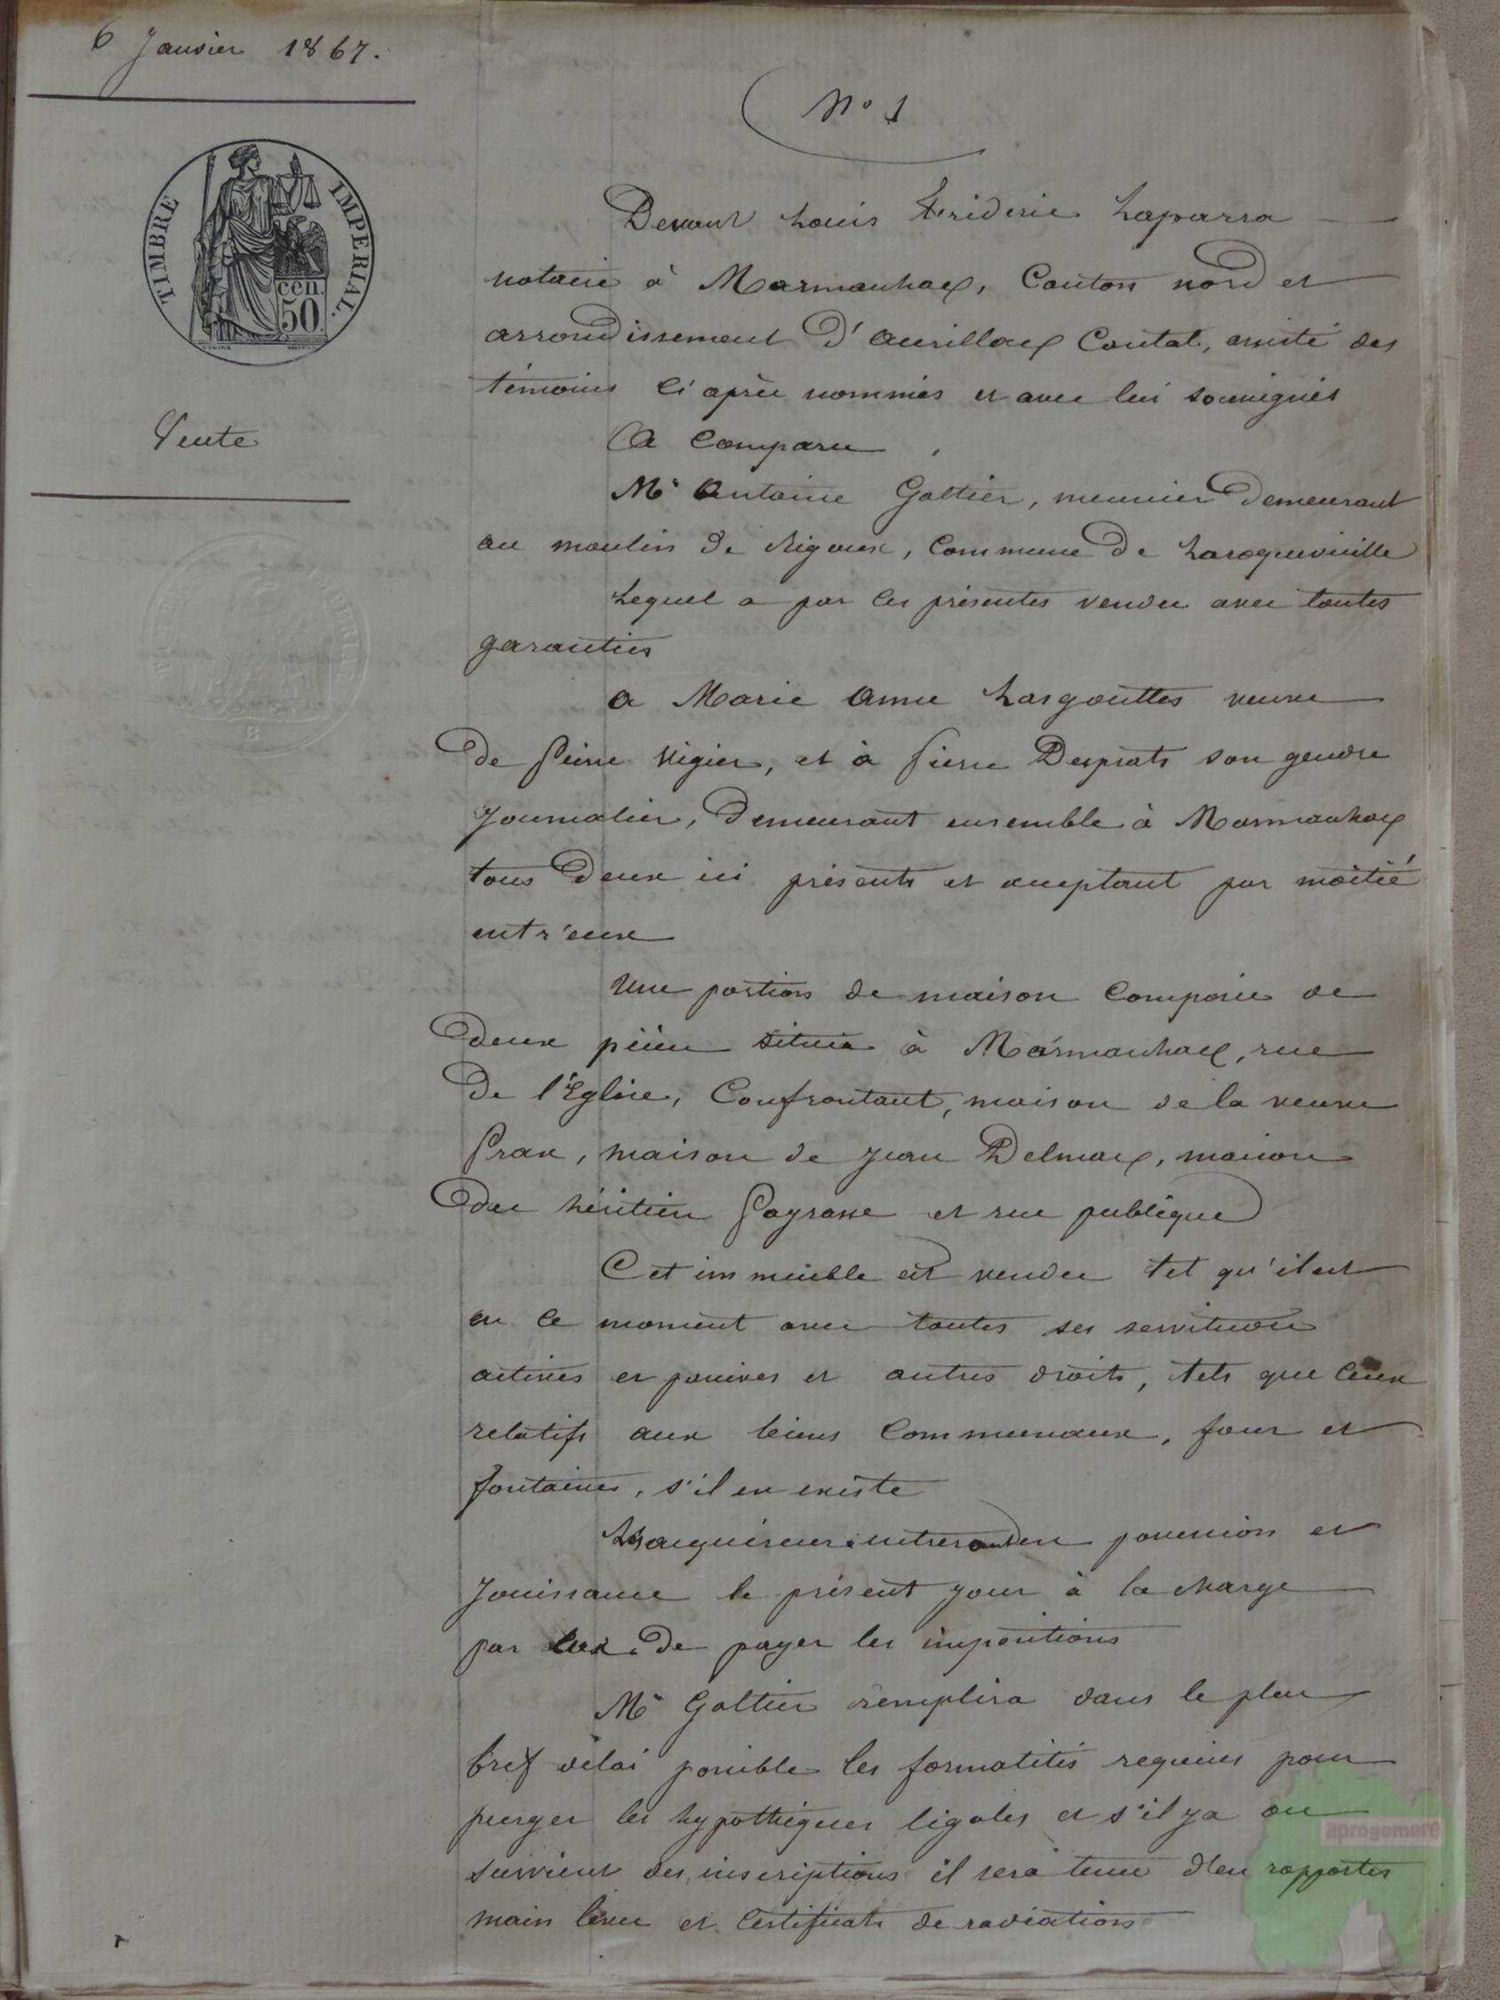 6 Janvier 1867.
N° 1
TIMBRE IMPERIAL.
cen.
50
Vente
Devant Louis Fréderic Laparra
notaire à Marmanhac, Canton nord et
arrondissement d'aurillac Cantal, assisté des
témoins ci après nommés et avec lui soussignés
A Comparu
Mr Antoine Galtier, meunier demeurant
au moulin de Rigoux, Commune de Laroquevieille
Lequel a par ces présentes vendu avec toutes
garanties
a Marie anne Lasgouttes veuve
de Pierre Vigier, et à Pierre Desprats son gendre
Journalier, demeurant ensemble à Marmanhac
tous deux ici présents et acceptant par moitié
entr'eux
Une portion de maison Composée de
deux pièces située à Marmanhac, rue
de l'Eglise, Confrontant, maison de la veuve
Prax, maison de Jean Delmas, maison
des héritiers Payrasse et rue publique
Cet immeuble est vendu tel qu'il est
en ce moment avec toutes ses servitudes
actives et passives et autres droits, tels que ceux
relatifs aux biens Communaux, four et
fontaines, s'il en existe
Les acquéreurs entreront en possession et
Jouissance le présent jour à la charge
par eux de payer les impositions
Mr Galtier remplira dans le plus
bref délai possible les formalités requises pour
purger les hypothèques légales et s'il y a ou
survient des inscriptions il sera tenu d'en rapporter
main levée et Certificats de radiations
aprogemere